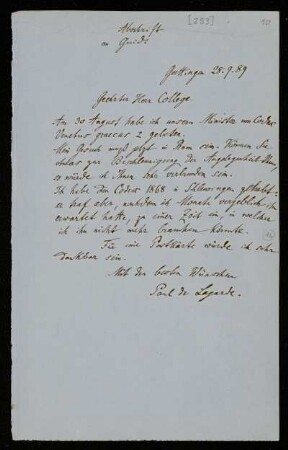 [253]
Abschrift
an Guidi
Göttingen 28.9.89
Geehrter Herr College
Am 30 August habe ich unsern Minister um Codex
Venetus graecus 2 gebeten.
Mein Gesuch muß jetzt in Rom sein. Können Sie
etwas zur Beschleunigung der Angelegenheit thun,
so würde ich Ihnen sehr verbunden sein.
Ich habe den Codex 1868 in Schleusingen gehabt:
er traf aber, nachdem ich Monate vergeblich ihn
erwartet hatte, zu einer Zeit ein, in welcher
ich ihn nicht mehr brauchen konnte.
Für eine Postkarte würde ich sehr
dankbar sein.
Mit den besten Wünschen
Paul de Lagarde.